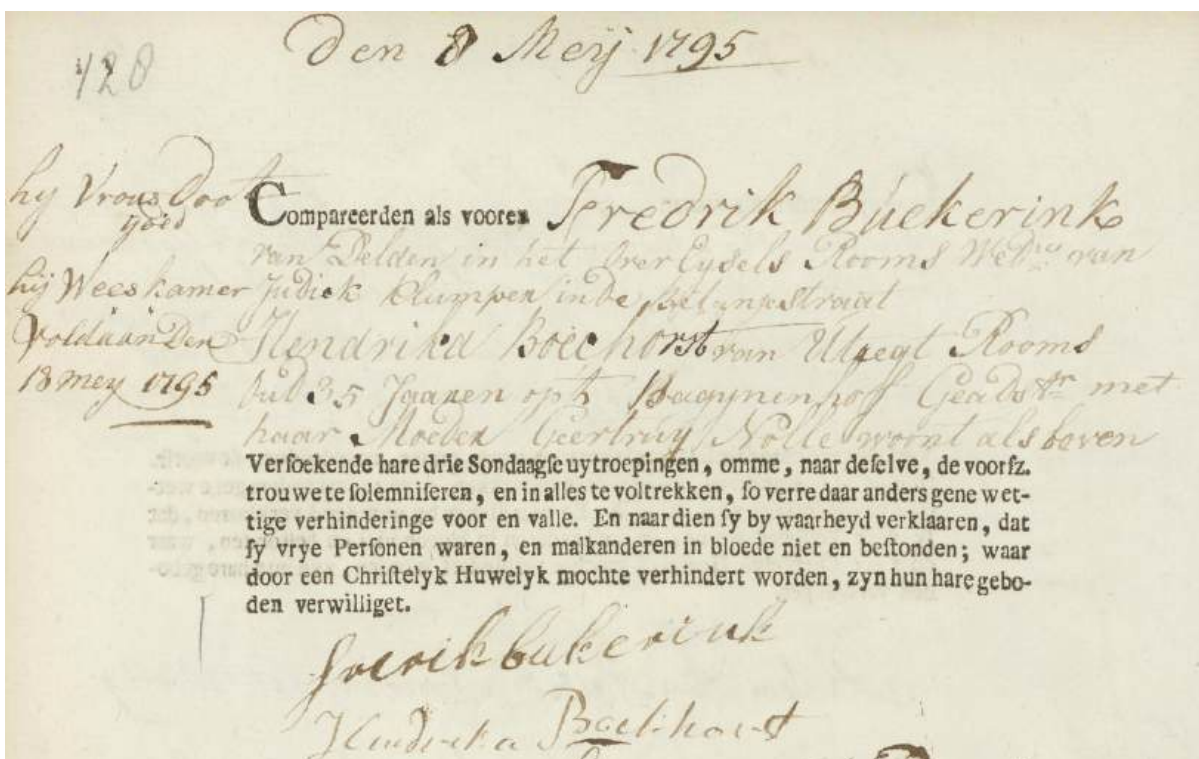 Den 8 Meij 1795
128
hij Vrous Doot
goed
hij Weeskamer
voldaan Den
18 mey 1795
Compareerden als vooren Fredrik Buekerink
van Delden in het OverEysels Rooms Wedr. van
Judick Klumper in de
Hendrika Boeckhorst van Utregt Rooms
oud 35 Jaaren op't Bagynenhoff Geadstr. met
haar Moeder Geertruy Nolle woont als boven
Verſoekende hare drie Sondaagſe uytroepingen, omme, naar deſelve, de voorſz.
trouwe te ſolemniſeren, en in alles te voltrekken, ſo verre daar anders gene wet-
tige verhinderinge voor en valle. En naardien ſy by waarheyd verklaaren, dat
ſy vrye Perſonen waren, en malkanderen in bloede niet en beſtonden; waar
door een Chriſtelyk Huwelyk mochte verhindert worden, zyn hun hare gebo-
den verwilliget.
frerik bukerink
Hendrika Boekhorst